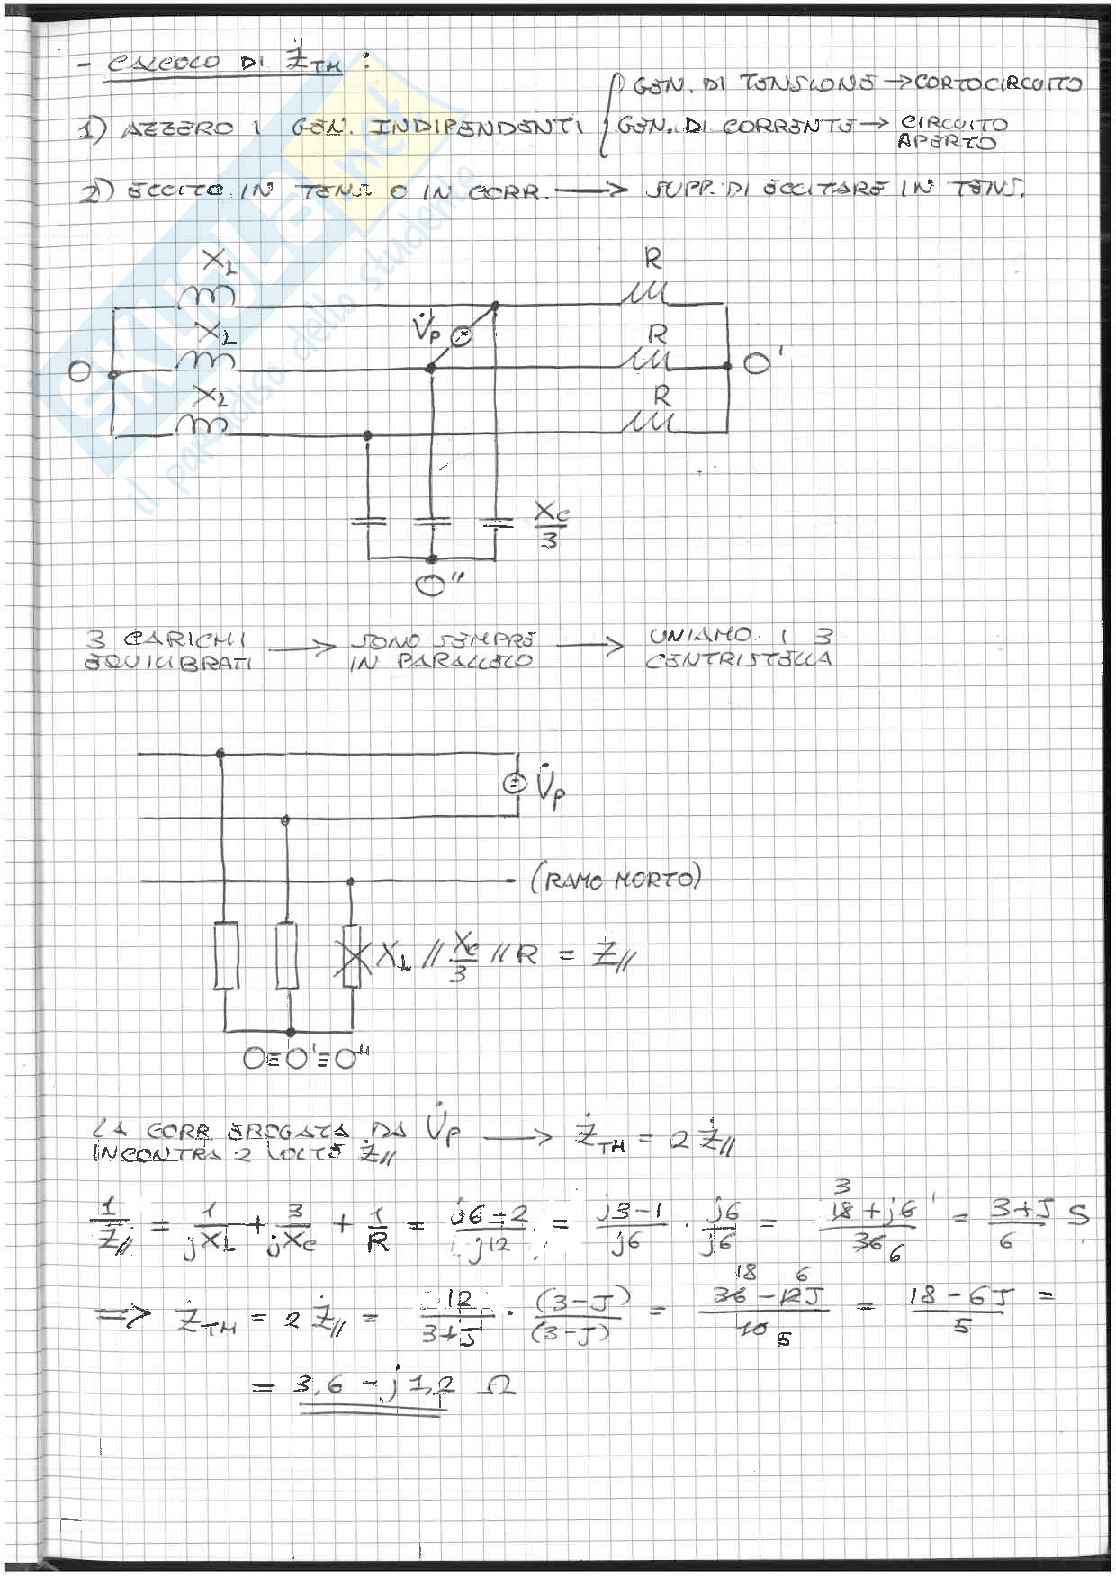 - CALCOLO DI Ż_TH :
1) AZZERO I GEN. INDIPENDENTI { GEN. DI TENSIONE → CORTOCIRCUITO
GEN. DI CORRENTE → CIRCUITO APERTO
2) ECCITO IN TENS O IN CORR. → SUPP. DI ECCITARE IN TENS.
X_L R
V̇p
X_L R
O O'
X_L R
X_C/3
O''
3 CARICHI EQUILIBRATI → SONO SEMPRE IN PARALLELO → UNIAMO I 3 CENTRISTELLA
V̇p
(RAMO MORTO)
X_L // X_C/3 // R = Ż//
O≡O'≡O''
LA CORR EROGATA DA V̇p → Ż_TH = 2 Ż//
INCONTRA 2 VOLTE Ż//
1/Ż// = 1/jX_L + 3/jX_C + 1/R = (j6-2)/j12 = (j3-1)/j6 · j6/j6 = (18+j6)/36 3 6 = (3+J)/6 S
=> Ż_TH = 2 Ż// = 12/(3+J) · (3-J)/(3-J) = (36-12J)/10 18 6 5 = (18-6J)/5 =
= 3,6 - j1,2 Ω
SKUOLA.net
il paradiso dello studente